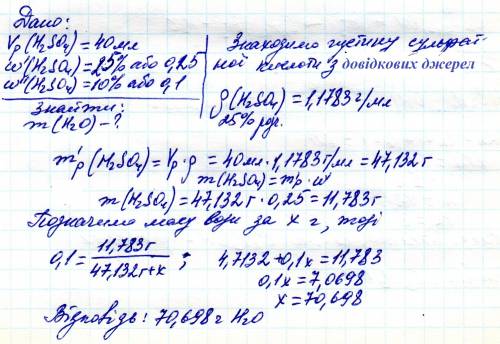 Дано:
Vp(H₂SO₄)=40мл
ω'(H₂SO₄)=25% або 0,25
ω''(H₂SO₄)=10% або 0,1
Знайти:
m(H₂O)-?
Знаходимо густину сульфат-
ної кислоти з довідкових джерел
ρ(H₂SO₄)=1,1783г/мл
25% розч.
m'p(H₂SO₄)=Vp·ρ=40мл·1,1783г/мл=47,132г
m(H₂SO₄)=m'p·ω'
m(H₂SO₄)=47,132г·0,25=11,783г
Позначимо масу води за x г, тоді
0,1=11,783г/47,132г+x ; 4,7132+0,1x=11,783
0,1x=7,0698
x=70,698
Відповідь: 70,698г H₂O